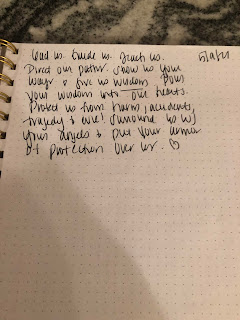 Lead us. Guide us. Teach us.
Direct our paths. Show us your
ways & give us wisdom. Pour
your wisdom into our hearts.
Protect us from harm, accidents,
tragedy & evil! Surround us w/
your angels & put your armor
of protection over us. ♡